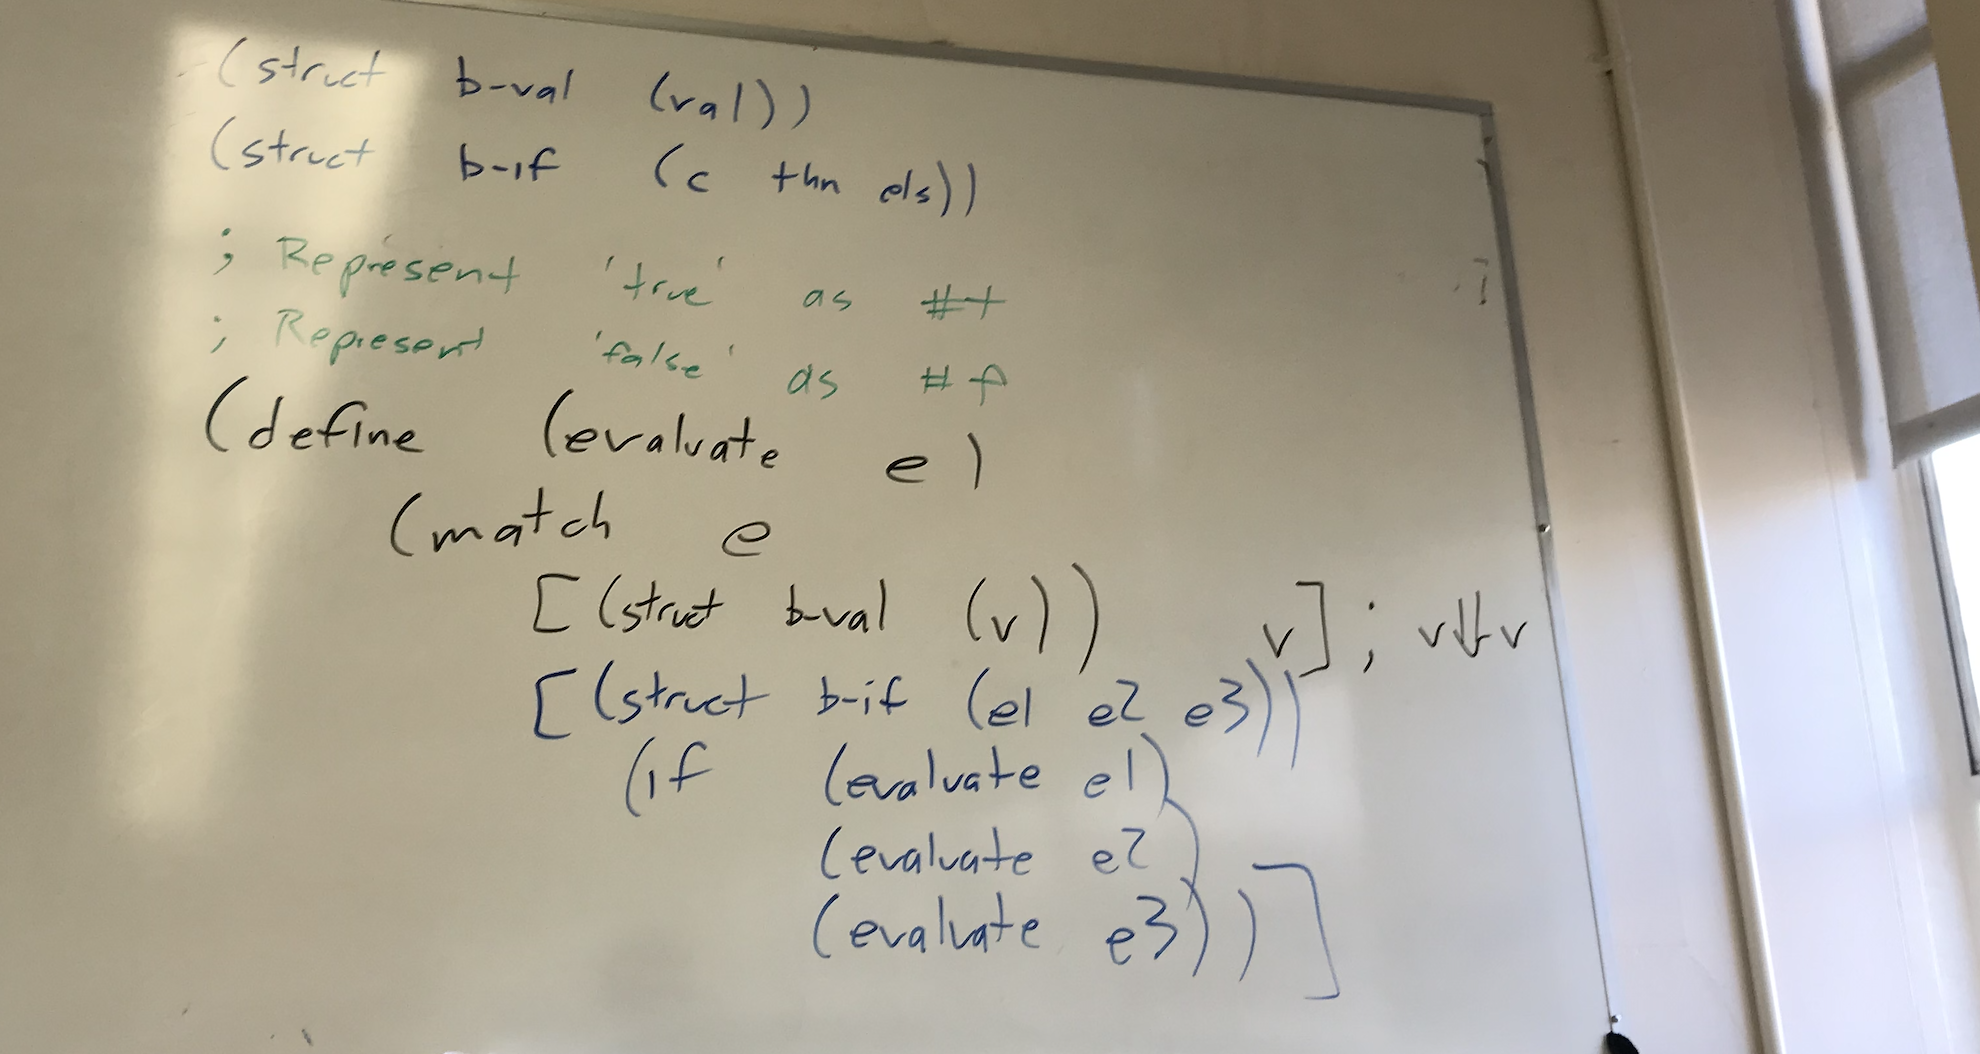 (struct b-val (val))
(struct b-if (c thn els))
; Represent 'true' as #t
; Represent 'false' as #f
(define (evaluate e)
(match e
[(struct b-val (v)) v] ; v⇓v
[(struct b-if (e1 e2 e3))
(if (evaluate e1)
(evaluate e2)
(evaluate e3))]